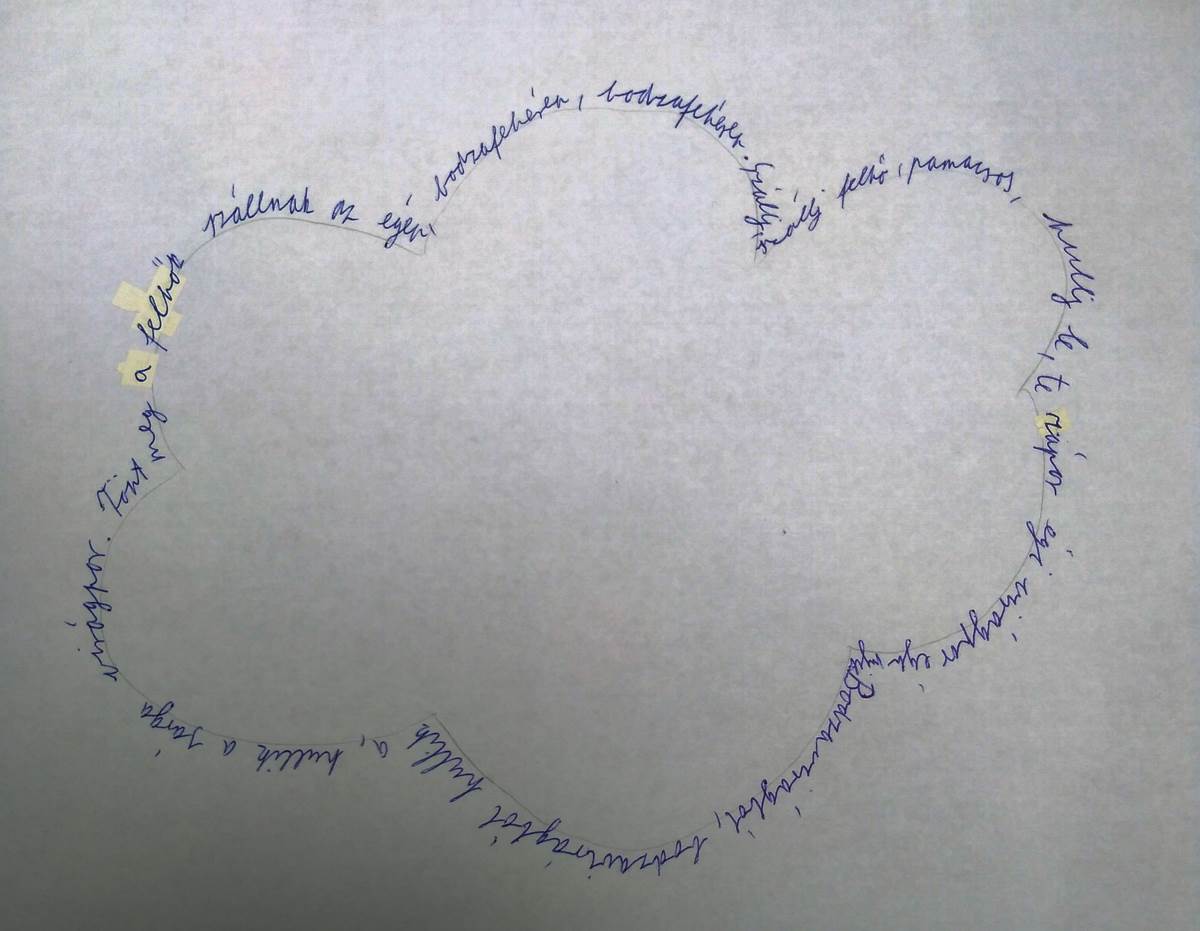 Bodzavirágból, bodzavirágból hullik a, hullik a sárga virágpor. Fönt meg a felhők szállnak az égen, bodzafehéren, bodzafehéren. Szállj, szállj felhő, pamacsos, hullj le, te zápor égi virágpor